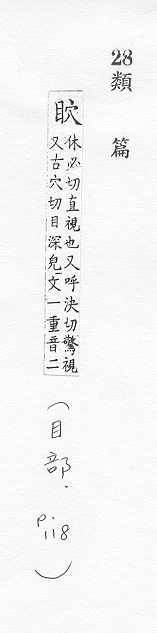 28類 篇
休必切直視也又呼決切驚視
又古穴切目深皃文一重音二
(目部. P.118)